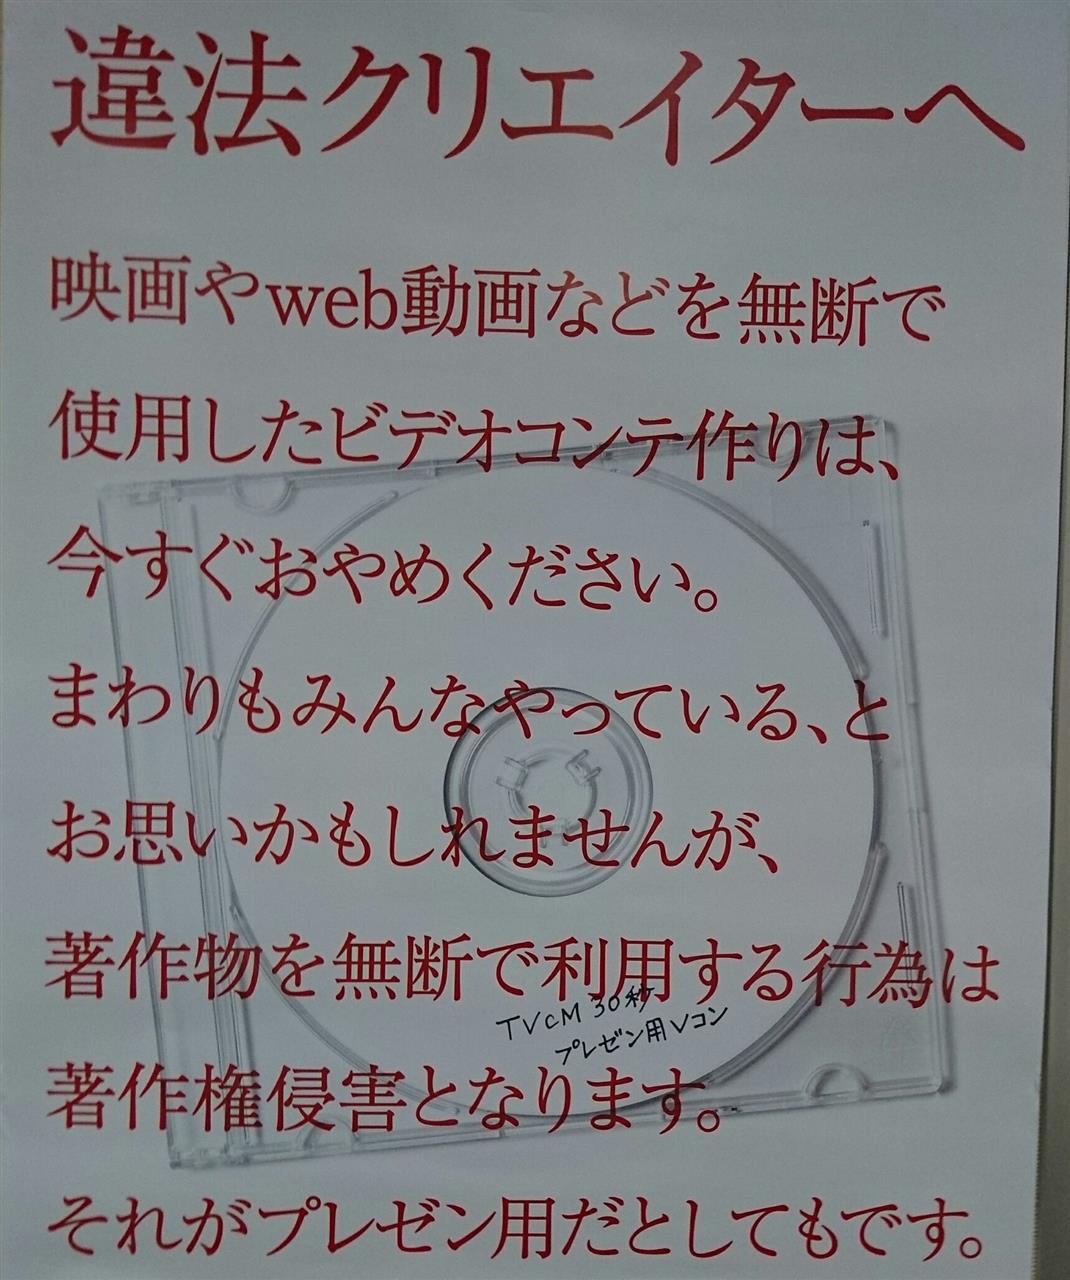 違法クリエイターへ
映画やweb動画などを無断で
使用したビデオコンテ作りは、
今すぐおやめください。
まわりもみんなやっている、と
お思いかもしれませんが、
著作物を無断で利用する行為は
TVCM 30秒
プレゼン用Vコン
著作権侵害となります。
それがプレゼン用だとしてもです。